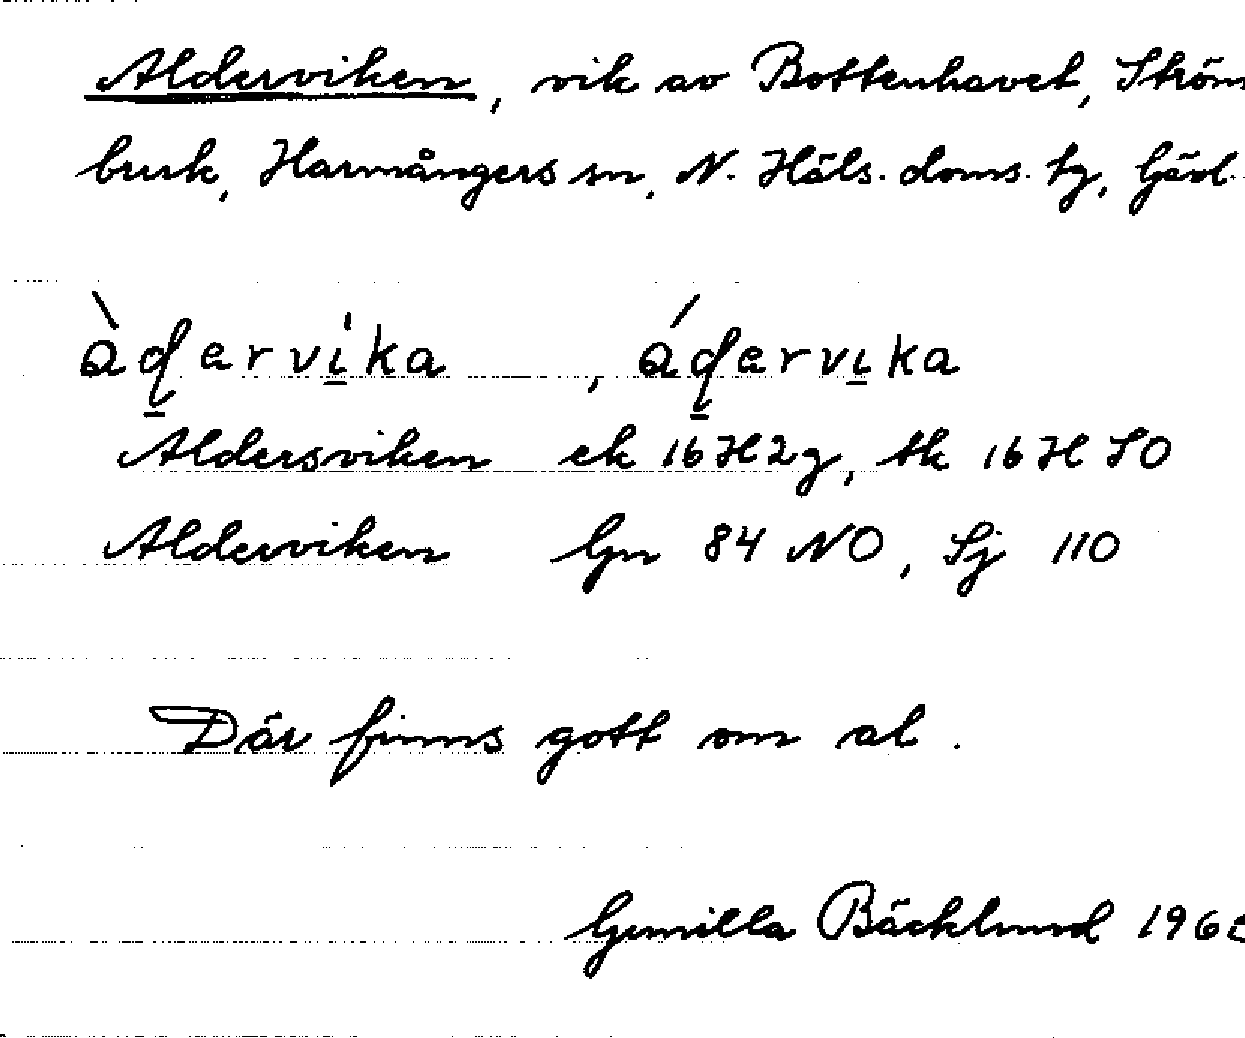 Alderviken, vik av Bottenhavet, Ström
bruk, Harmångers sn, N. Häls. doms. tg, Gävl.
àɖarvi̠ka, áɖarvi̠ka
Aldersviken ek 16H2g, tk 16H SO
Alderviken Gn 84 NO, Sj 110
Där finns gott om al.
Gunilla Bäcklund